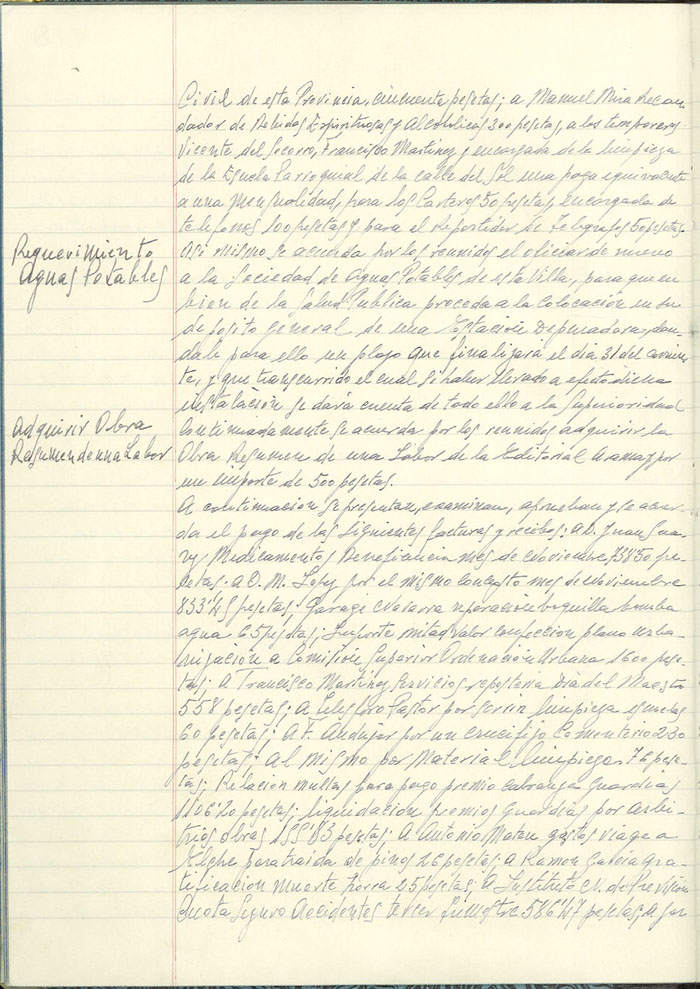 Civil de esta Provincia, cincuenta pesetas; a Manuel Mira Recau-
dador de Bebidas Espirituosas y Alcoholicas 300 pesetas, a los temporeros
Vicente del Socorro, Francisco Martinez y encargada de la limpieza
de la Escuela Parroquial de la calle del Sol una paga equivalente
a una mensualidad, para los Carteros 50 pesetas, encargada de
telefonos 100 pesetas y para el repartidor de Telegrafos 50 pesetas.
Requerimiento
Aguas Potables
Asi mismo se acuerda por los reunidos el oficiar de nuevo
a la Sociedad de Aguas Potables de esta Villa, para que en
bien de la Salud Publica proceda a la colocacion en su
deposito general de una Estacion Depuradora, dan-
dole para ello un plazo que finalizará el dia 31 del corrien-
te, y que transcurrido el cual si haber llevado a efecto dicha
instalación se daria cuenta de todo ello a la Superioridad
Adquirir Obra
Resumen de una Labor
Continuadamente se acuerda por los reunidos adquirir la
Obra Resumen de una Labor de la Editorial por
un importe de 500 pesetas.
A continuacion se presentan, examinan, aprueban y se acuer-
da el pago de las siguientes facturas y recibos: a D. Juan
Medicamentos Beneficencia mes de Noviembre, 738'50 pe-
setas: a D. M. Lopez por el mismo concepto mes de Noviembre
833'45 pesetas; Garage Navarra reparación boquilla bomba
agua 65 pesetas; Importe mitad valor confeccion plano urba-
nización a Comisión Superior Ordenación Urbana 1600 pese-
tas; A Francisco Martinez servicios reposteria Dia del Maestro
558 pesetas; A Telesforo Pastor por serrin limpieza escuelas
60 pesetas; A F. Andujar por un crucifijo Cementerio 230
pesetas; Al mismo por Material limpieza 76 pese-
tas; Relacion multas para pago premio cobranza Guardias
1106'20 pesetas; liquidacion premios Guardias por arbi-
trios obras 155'83 pesetas; A Antonio gastos viage a
Elche para traida de pinos 26 pesetas; A Ramon Garcia gra-
tificacion muerte zorra 25 pesetas; A Instituto N. de Prevision
Cuota Seguro Accidentes tercer trimestre 586'47 pesetas; A